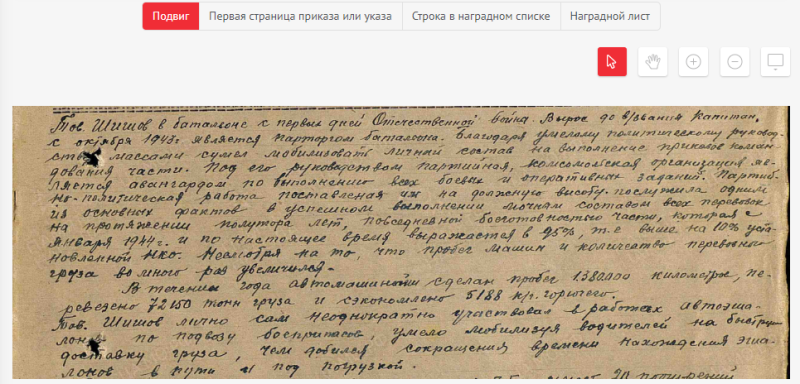 Подвиг
Первая страница приказа или указа
Строка в наградном списке
Наградной лист
Тов. Шишов в батальоне с первых дней Отечественной война. Вырос до в/звания капитан,
с октября 1943г. является парторгом батальона. Благодаря умелому политическому руковод-
ству массами сумел мобилизовать личный состав на выполнение приказов коман-
дования части. Под его руководством партийная, комсомольская организация яв-
ляется авангардом по выполнению всех боевых и оперативных заданий. Партий-
но-политическая работа поставленая им на должную высоту. послужила одним
из основных фактов в успешном выполнении личным составом всех перевозок
на протяжении полутора лет, повседневной боеготовностью части, которая с
января 1944г. и по настоящее время выражается в 95%, т.е выше на 10% уста-
новленной НКО. Несмотря на то, что пробег машин и количество перевозимо
груза во много раз увеличился.
В течении года автомашиной сделан пробег 1380000 километров, пе-
ревезено 72150 тонн груза и сэкономлено 5188 кгр. горючего.
Тов. Шишов лично сам неоднократно участвовал в работах автоэша-
лонов по подвозу боеприпасов, умело мобилизуя водителей на быструю
доставку груза, чем добился сокращения времени нахождения эша-
лонов в пути и под погрузкой.